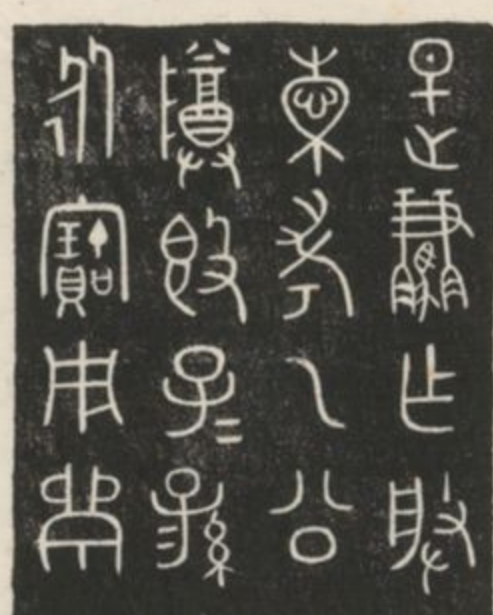 是婁乍朕
文考乙公
尊𣪘子二孫
永寶用鼎